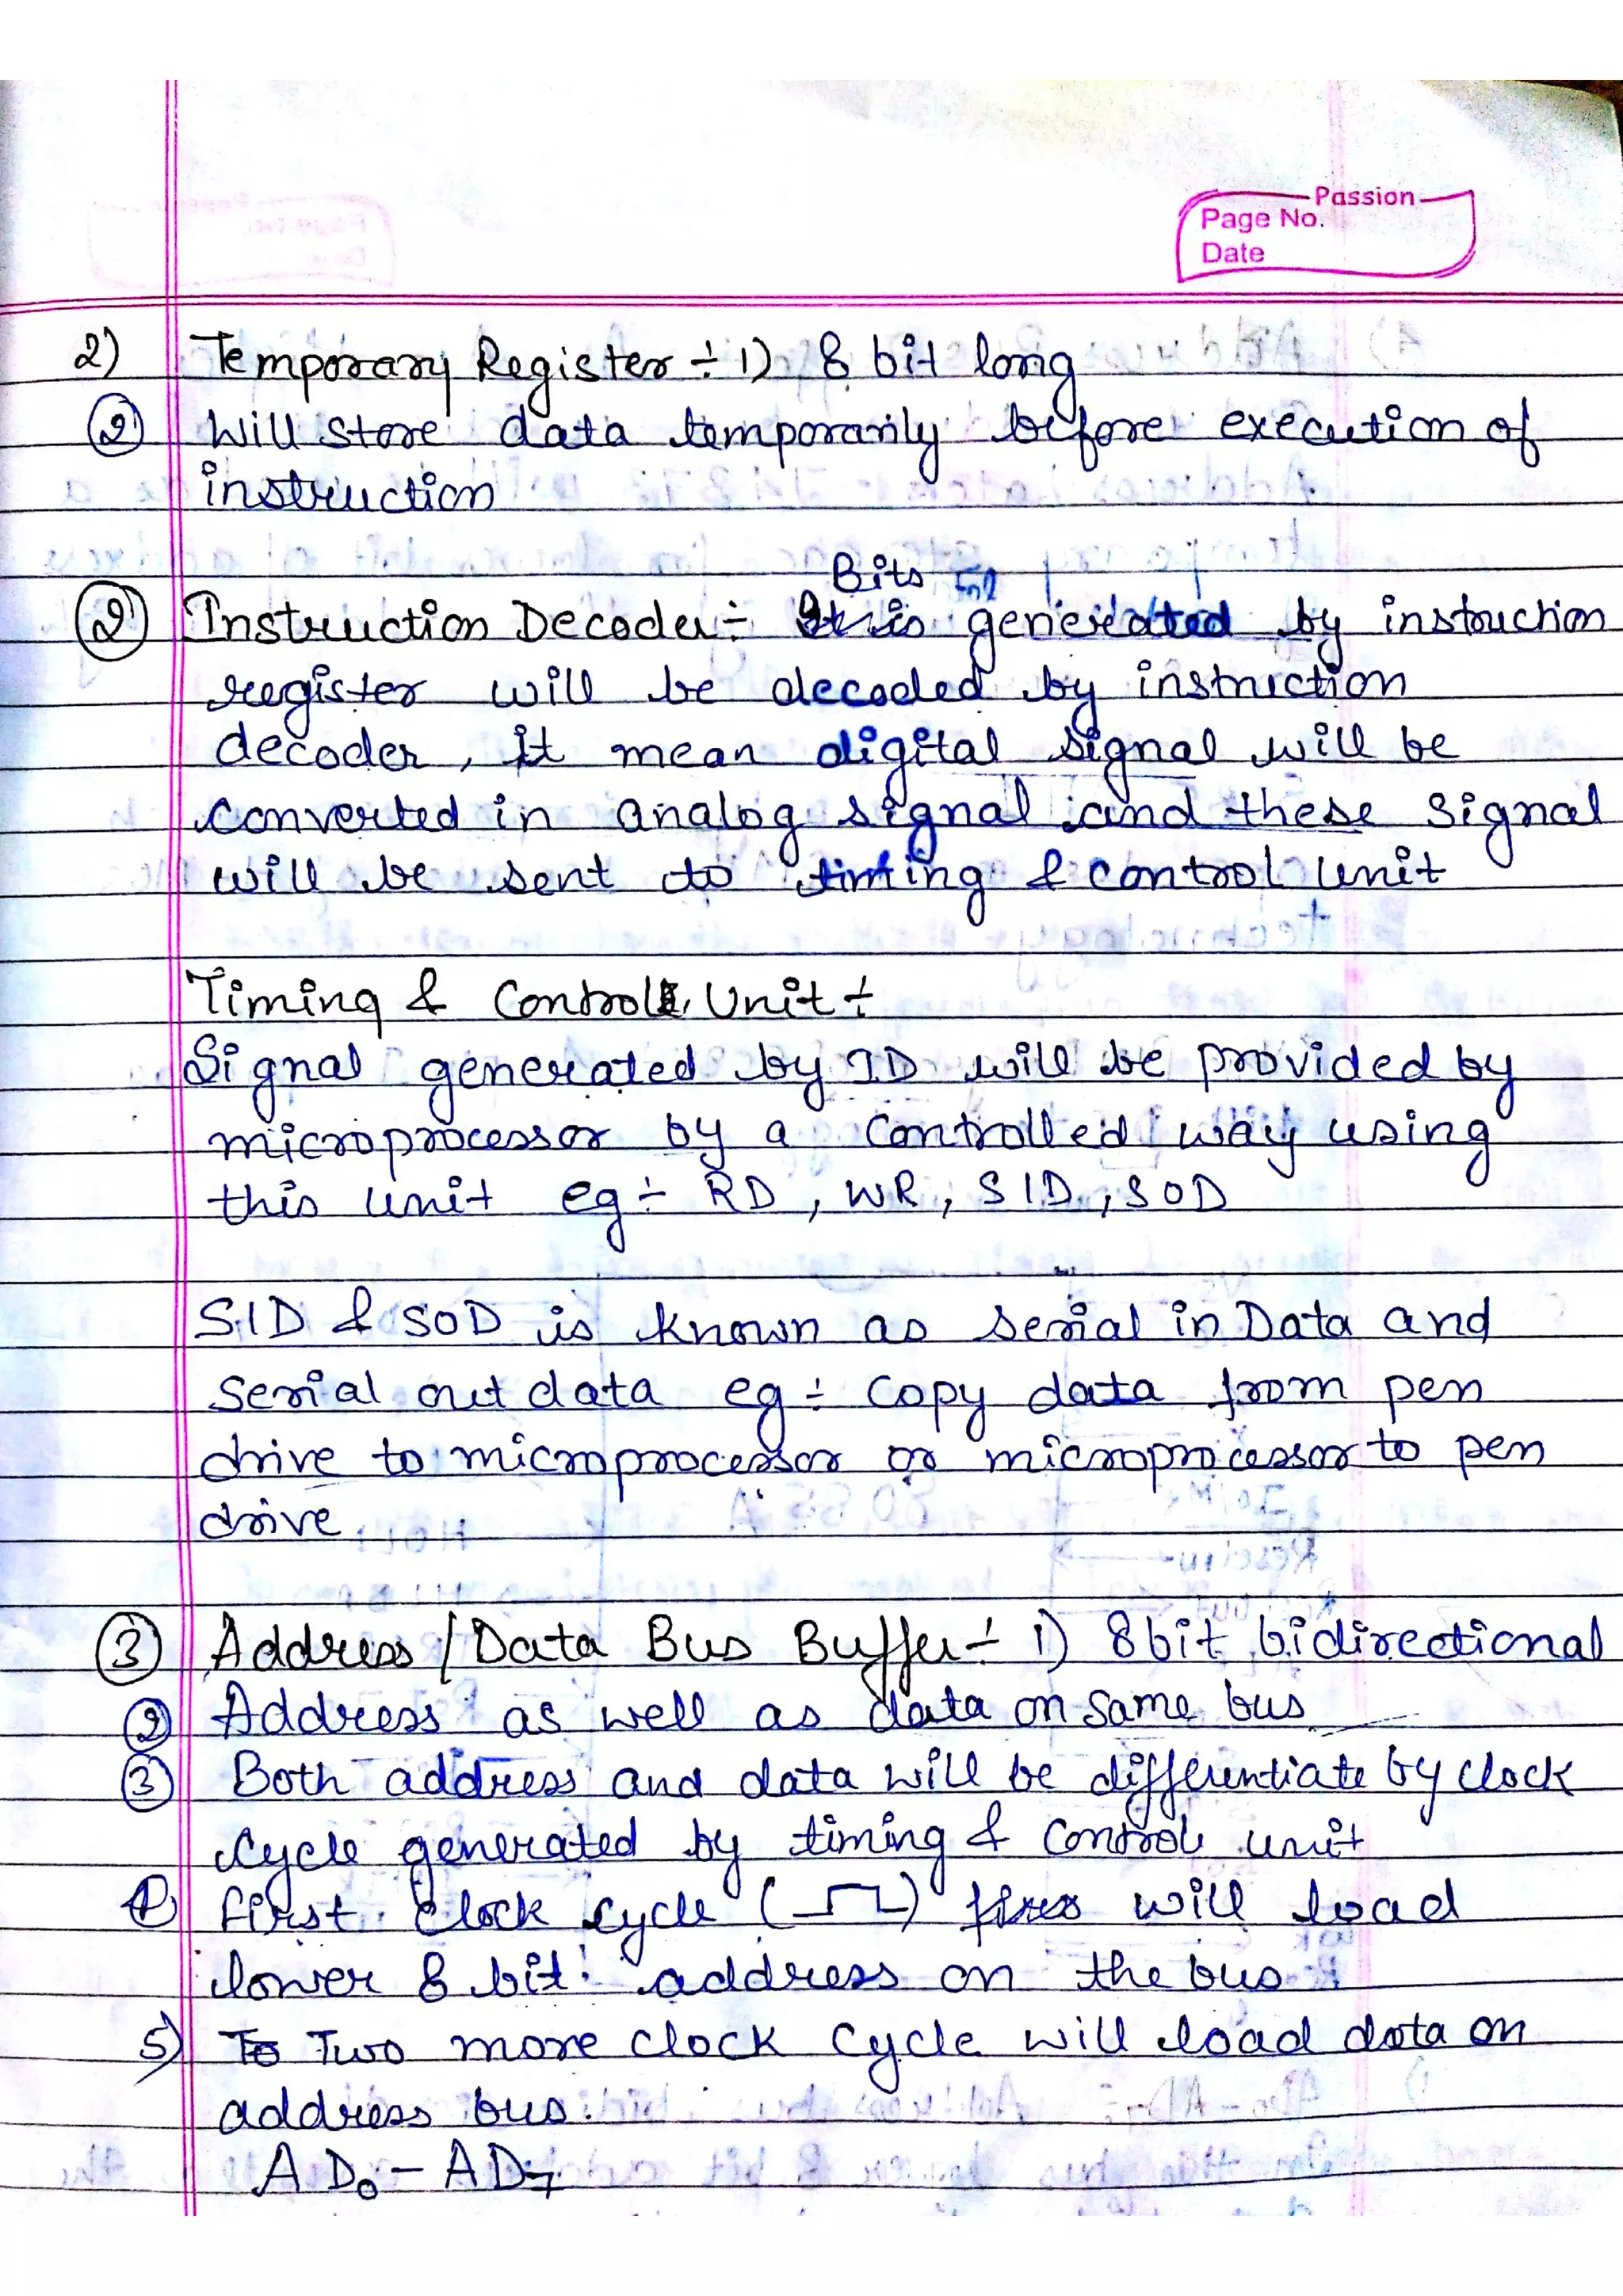 Passion
Page No.
Date
2) Temporary Register ÷ 1) 8 bit long
② Will store data temporarily before execution of
instruction
Bits
② Instruction Decoder ÷ is generated by instruction
register will be decoded by instruction
decoder, it mean digital signal will be
converted in analog signal and these signal
will be sent to timing & control unit
Timing & Control Unit ÷
Signal generated by ID will be provided by
microprocessor by a controlled way using
this unit eg ÷ RD, WR, SID, SOD
SID & SOD is known as serial in Data and
serial out data eg ÷ copy data from pen
drive to microprocessor or microprocessor to pen
drive
③ Address / Data Bus Buffer ÷ 1) 8 bit bidirectional
② Address as well as data on same bus
③ Both address and data will be differentiate by clock
cycle generated by timing & control unit
first clock cycle ( ) will load
lower 8 bit address on the bus
5) Two more clock cycle will load data on
address bus.
AD₀ – AD₇